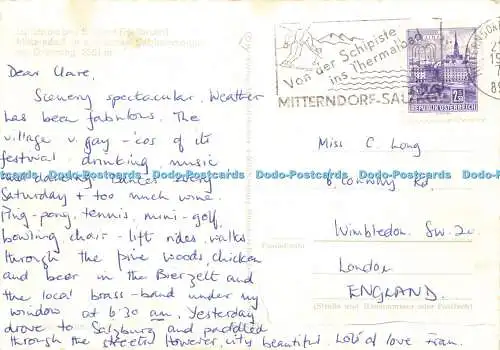 Mitterndorf
Dear Clare,
Scenery spectacular. Weather
has been fabulous. The
village v gay - 'cos of its
festival drinking music
and dancing every
Saturday + too much wine.
Ping-pong, tennis, mini-golf,
bowling, chair-lift rides, walks
through the pine woods, chicken
and beer in the Bierzelt and
the local brass-band under my
window at 6.30 am. Yesterday
drove to Salzburg and paddled
through the streets! However, city beautiful. Lots of love Fran.
Von der Schipiste
ins Thermalbad
MITTERNDORF-SAL
REPUBLIK ÖSTERREICH
Miss C. Long
6 Conway Rd.
Wimbledon. S.W.20
London
ENGLAND.
Postleitzahl
Dodo-Postcards Dodo-Postcards Dodo-Postcards Dodo-Postcards Dodo-Postcards